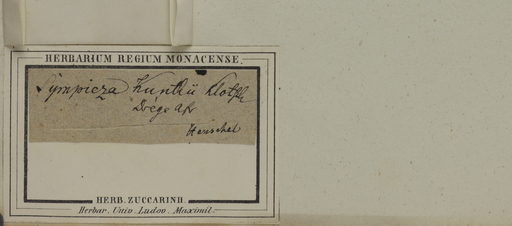 HERBARIUM REGIUM MONACENSE.
Sympieza Kunthii Klotzsch
Drège Afr
Henschel
HERB. ZUCCARINII.
Herbar. Univ. Ludov. Maximil.